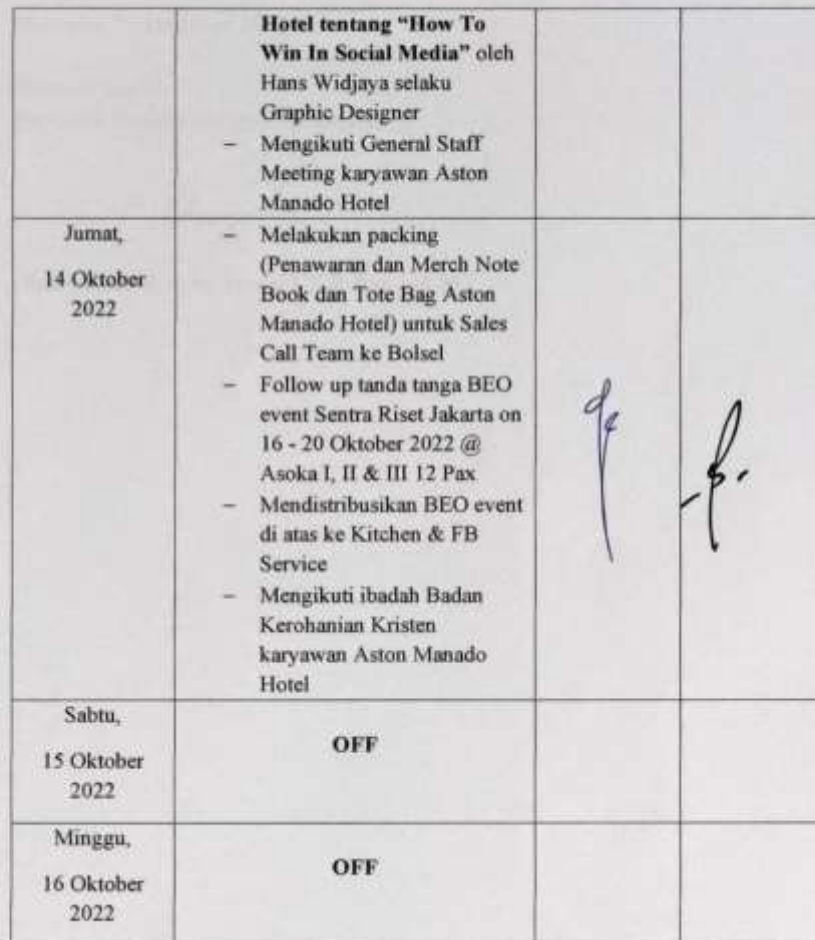 Hotel tentang “How To
Win In Social Media” oleh
Hans Widjaya selaku
Graphic Designer
– Mengikuti General Staff
Meeting karyawan Aston
Manado Hotel
Jumat,
14 Oktober
2022
– Melakukan packing
(Penawaran dan Merch Note
Book dan Tote Bag Aston
Manado Hotel) untuk Sales
Call Team ke Bolsel
– Follow up tanda tanga BEO
event Sentra Riset Jakarta on
16 - 20 Oktober 2022 @
Asoka I, II & III 12 Pax
– Mendistribusikan BEO event
di atas ke Kitchen & FB
Service
– Mengikuti ibadah Badan
Kerohanian Kristen
karyawan Aston Manado
Hotel
Sabtu,
15 Oktober
2022
OFF
Minggu,
16 Oktober
2022
OFF